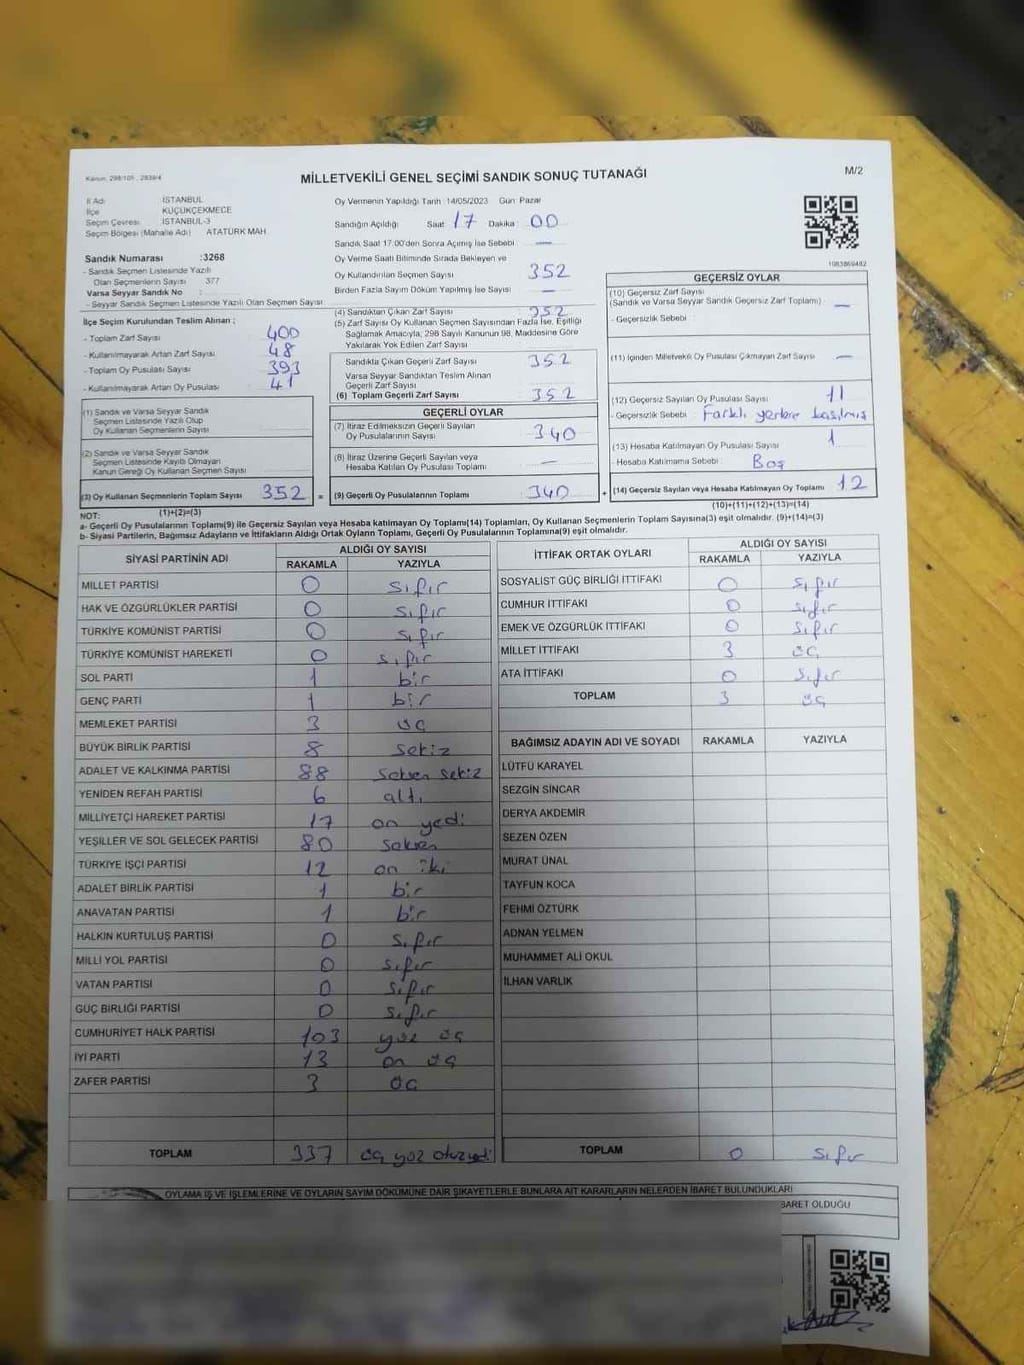 Kanun, 298/105 , 2839/4
MİLLETVEKİLİ GENEL SEÇİMİ SANDIK SONUÇ TUTANAĞI
M/2
İl Adı İSTANBUL
İlçe KÜÇÜKÇEKMECE
Seçim Çevresi İSTANBUL-3
Seçim Bölgesi (Mahalle Adı) ATATÜRK MAH
Sandık Numarası :3268
- Sandık Seçmen Listesinde Yazılı
Olan Seçmenlerin Sayısı 377
Varsa Seyyar Sandık No :
- Seyyar Sandık Seçmen Listesinde Yazılı Olan Seçmen Sayısı
Oy Vermenin Yapıldığı Tarih : 14/05/2023 Gün: Pazar
Sandığın Açıldığı Saat 17 Dakika : 00
Sandık Saat 17.00'den Sonra Açılmış İse Sebebi —
Oy Verme Saati Bitiminde Sırada Bekleyen ve
Oy Kullandırılan Seçmen Sayısı 352
Birden Fazla Sayım Döküm Yapılmış İse Sayısı —
1083869482
İlçe Seçim Kurulundan Teslim Alınan ;
- Toplam Zarf Sayısı 400
- Kullanılmayarak Artan Zarf Sayısı 48
- Toplam Oy Pusulası Sayısı 393
- Kullanılmayarak Artan Oy Pusulası 41
(1) Sandık ve Varsa Seyyar Sandık
Seçmen Listesinde Yazılı Olup
Oy Kullanan Seçmenlerin Sayısı
(2) Sandık ve Varsa Seyyar Sandık
Seçmen Listesinde Kayıtlı Olmayan
Kanun Gereği Oy Kullanan Seçmen Sayısı
(3) Oy Kullanan Seçmenlerin Toplam Sayısı 352 =
(1)+(2)=(3)
(4) Sandıktan Çıkan Zarf Sayısı 352
(5) Zarf Sayısı Oy Kullanan Seçmen Sayısından Fazla İse, Eşitliği
Sağlamak Amacıyla, 298 Sayılı Kanunun 98. Maddesine Göre
Yakılarak Yok Edilen Zarf Sayısı
Sandıkta Çıkan Geçerli Zarf Sayısı 352
Varsa Seyyar Sandıktan Teslim Alınan
Geçerli Zarf Sayısı
(6) Toplam Geçerli Zarf Sayısı 352
GEÇERLİ OYLAR
(7) İtiraz Edilmeksizin Geçerli Sayılan
Oy Pusulalarının Sayısı 340
(8) İtiraz Üzerine Geçerli Sayılan veya
Hesaba Katılan Oy Pusulası Toplamı —
(9) Geçerli Oy Pusulalarının Toplamı 340 +
GEÇERSİZ OYLAR
(10) Geçersiz Zarf Sayısı
(Sandık ve Varsa Seyyar Sandık Geçersiz Zarf Toplamı) —
- Geçersizlik Sebebi
(11) İçinden Milletvekili Oy Pusulası Çıkmayan Zarf Sayısı —
(12) Geçersiz Sayılan Oy Pusulası Sayısı 11
- Geçersizlik Sebebi : Farklı yerlere basılmış
(13) Hesaba Katılmayan Oy Pusulası Sayısı 1
- Hesaba Katılmama Sebebi : Boş
(14) Geçersiz Sayılan veya Hesaba Katılmayan Oy Toplamı 12
(10)+(11)+(12)+(13)=(14)
NOT:
a- Geçerli Oy Pusulalarının Toplamı(9) ile Geçersiz Sayılan veya Hesaba katılmayan Oy Toplamı(14) Toplamları, Oy Kullanan Seçmenlerin Toplam Sayısına(3) eşit olmalıdır. (9)+(14)=(3)
b- Siyasi Partilerin, Bağımsız Adayların ve İttifakların Aldığı Ortak Oyların Toplamı, Geçerli Oy Pusulalarının Toplamına(9) eşit olmalıdır.
SİYASİ PARTİNİN ADI ALDIĞI OY SAYISI
RAKAMLA YAZIYLA
MİLLET PARTİSİ 0 sıfır
HAK VE ÖZGÜRLÜKLER PARTİSİ 0 sıfır
TÜRKİYE KOMÜNİST PARTİSİ 0 sıfır
TÜRKİYE KOMÜNİST HAREKETİ 0 sıfır
SOL PARTİ 1 bir
GENÇ PARTİ 1 bir
MEMLEKET PARTİSİ 3 üç
BÜYÜK BİRLİK PARTİSİ 8 sekiz
ADALET VE KALKINMA PARTİSİ 88 seksen sekiz
YENİDEN REFAH PARTİSİ 6 altı
MİLLİYETÇİ HAREKET PARTİSİ 17 on yedi
YEŞİLLER VE SOL GELECEK PARTİSİ 80 seksen
TÜRKİYE İŞÇİ PARTİSİ 12 on iki
ADALET BİRLİK PARTİSİ 1 bir
ANAVATAN PARTİSİ 1 bir
HALKIN KURTULUŞ PARTİSİ 0 sıfır
MİLLİ YOL PARTİSİ 0 sıfır
VATAN PARTİSİ 0 sıfır
GÜÇ BİRLİĞİ PARTİSİ 0 sıfır
CUMHURİYET HALK PARTİSİ 103 yüz üç
İYİ PARTİ 13 on üç
ZAFER PARTİSİ 3 üç
TOPLAM 337 üç yüz otuzyedi
İTTİFAK ORTAK OYLARI ALDIĞI OY SAYISI
RAKAMLA YAZIYLA
SOSYALİST GÜÇ BİRLİĞİ İTTİFAKI 0 sıfır
CUMHUR İTTİFAKI 0 sıfır
EMEK VE ÖZGÜRLÜK İTTİFAKI 0 sıfır
MİLLET İTTİFAKI 3 üç
ATA İTTİFAKI 0 sıfır
TOPLAM 3 üç
BAĞIMSIZ ADAYIN ADI VE SOYADI RAKAMLA YAZIYLA
LÜTFÜ KARAYEL
SEZGİN SİNCAR
DERYA AKDEMİR
SEZEN ÖZEN
MURAT ÜNAL
TAYFUN KOCA
FEHMİ ÖZTÜRK
ADNAN YELMEN
MUHAMMET ALİ OKUL
İLHAN VARLIK
TOPLAM 0 sıfır
OYLAMA İŞ VE İŞLEMLERİNE VE OYLARIN SAYIM DÖKÜMÜNE DAİR ŞİKAYETLERLE BUNLARA AİT KARARLARIN NELERDEN İBARET BULUNDUKLARI
BARET OLDUĞU